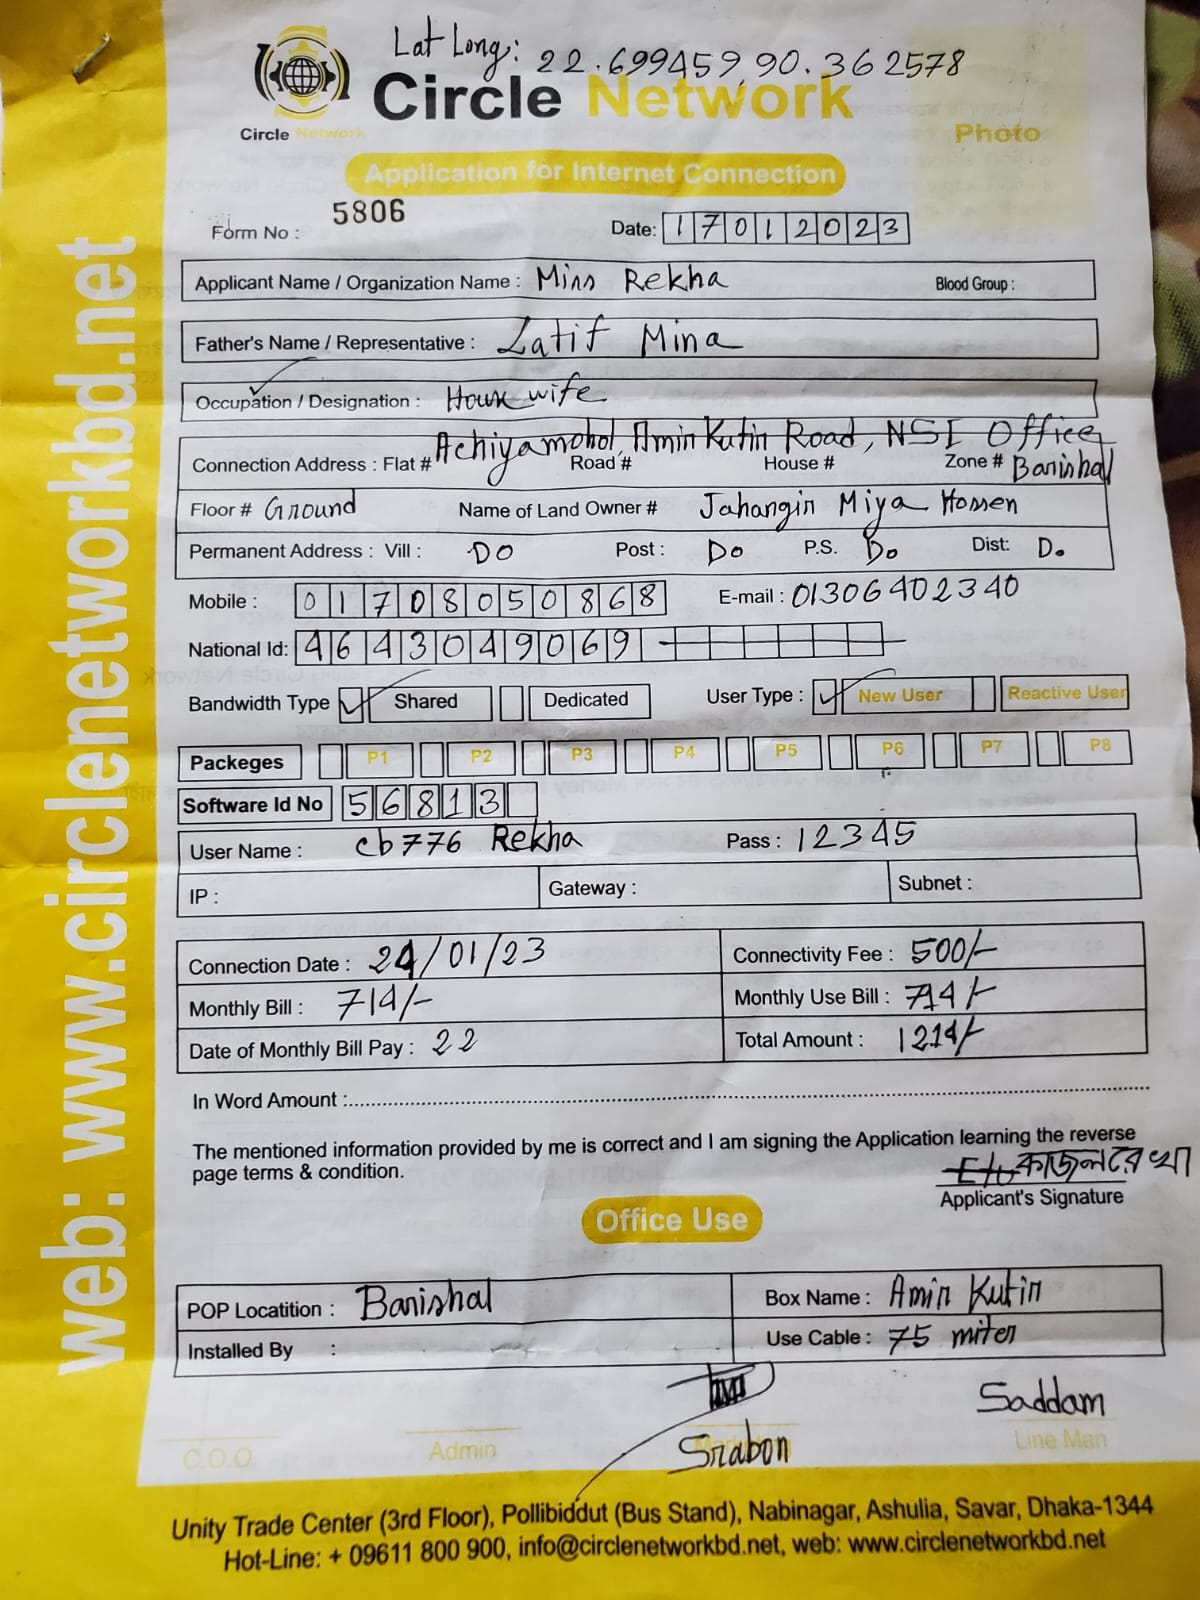 Lat Long: 22.699459,90.362578
Circle Network
Circle Network
Photo
Application for Internet Connection
Form No : 5806 Date: 17012023
Applicant Name / Organization Name : Miss Rekha Blood Group :
Father's Name / Representative : Latif Mina
Occupation / Designation : House wife
Achiyamohol, Amin Kutir Road, NSI Office
Connection Address : Flat # Road # House # Zone # Barishal
Floor # Ground Name of Land Owner # Jahangir Miya Hossen
Permanent Address : Vill : DO Post : Do P.S. Do Dist: Do
Mobile : 01708050868 E-mail : 01306402340
National Id: 4643049069
Bandwidth Type Shared Dedicated User Type : New User Reactive User
Packeges P1 P2 P3 P4 P5 P6 P7 P8
Software Id No 56813
User Name : cb776 Rekha Pass : 12345
IP : Gateway : Subnet :
Connection Date : 24/01/23 Connectivity Fee : 500/-
Monthly Bill : 714/- Monthly Use Bill : 714/-
Date of Monthly Bill Pay : 22 Total Amount : 1214/-
In Word Amount :
The mentioned information provided by me is correct and I am signing the Application learning the reverse
page terms & condition.
কাজল রেখা
Applicant's Signature
Office Use
POP Locatition : Barishal Box Name : Amir Kutir
Installed By : Use Cable : 75 miter
Saddam
Srabon
C.O.O Admin Line Man
Unity Trade Center (3rd Floor), Pollibiddut (Bus Stand), Nabinagar, Ashulia, Savar, Dhaka-1344
Hot-Line: + 09611 800 900, info@circlenetworkbd.net, web: www.circlenetworkbd.net
web: www.circlenetworkbd.net